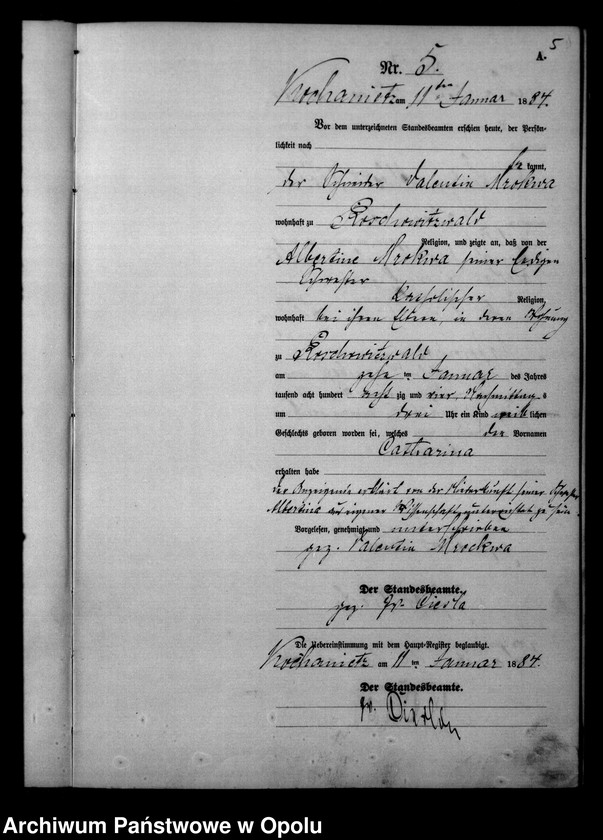 5
A.
Nr. 5.
Kochanietz am 11ten Januar 1884.
Vor dem unterzeichneten Standesbeamten erschien heute, der Persön-
lichkeit nach
kannt,
der Schneider Valentin Mrokwa
wohnhaft zu Roschowitzwald
Religion, und zeigte an, daß von der
Albertine Mrokwa seiner ledigen
Schwester
katholischer Religion,
wohnhaft bei ihren Eltern, in deren Wohnung
zu Roschowitzwald
am ten Januar des Jahres
tausend acht hundert acht zig und vier Nachmittags
um drei Uhr ein Kind weiblichen
Geschlechts geboren worden sei, welches den Vornamen
Catharina
erhalten habe
der Anzeigende erklärt von der Niederkunft seiner Schwester
Albertine aus eigener Wissenschaft unterrichtet zu sein.
Vorgelesen, genehmigt und unterschrieben
gez. Valentin Mrockwa
Der Standesbeamte.
gez. Gr.
Die Uebereinstimmung mit dem Haupt-Register beglaubigt.
Kochanietz am 11 ten Januar 1884.
Der Standesbeamte.
Archiwum Państwowe w Opolu